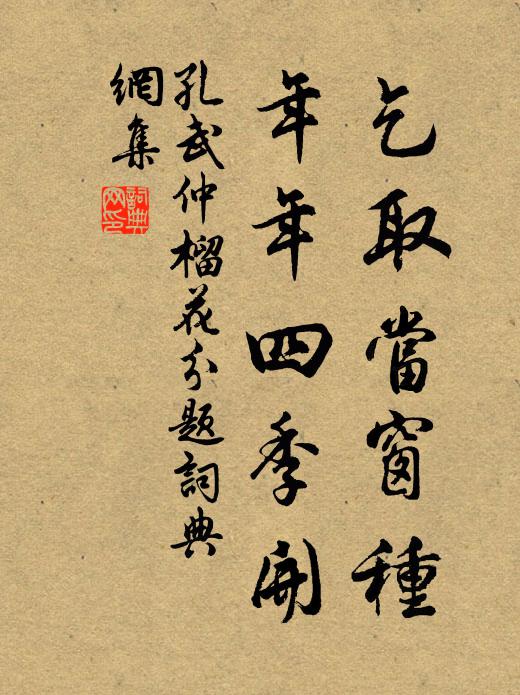 乞取當窗種
年年四季開
孔武仲榴花分題詞典
網集
詞典
网印